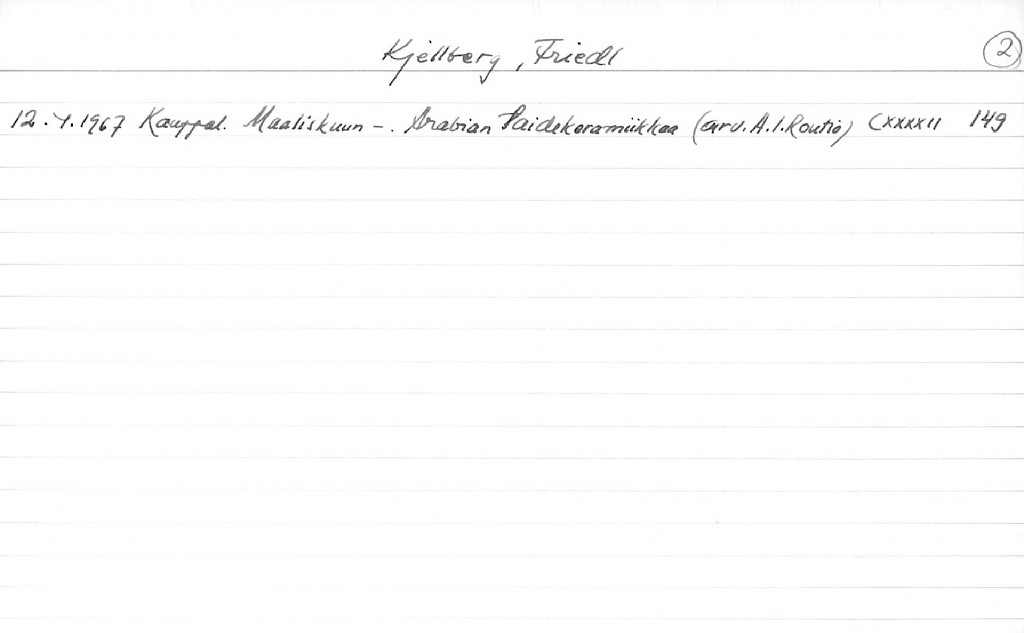 Kjellberg, Friedl 2
12.4.1967 Kauppal. Maaliskuun -. Arabian Taidekeramiikkaa (arv. A.I. Routio) CXXXXII 149